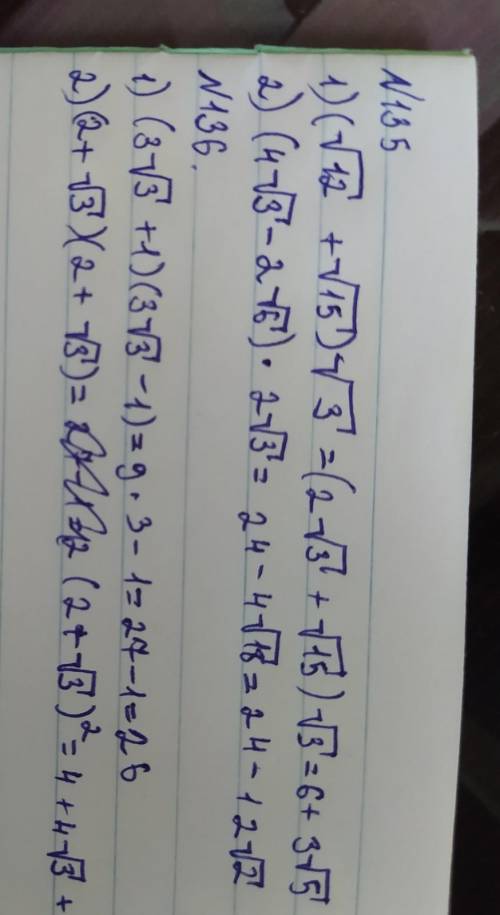 N135
1) (√12 + √15)·√3 = (2√3 + √15)√3 = 6 + 3√5
2) (4√3 - 2√6) · 2√3 = 24 - 4√18 = 24 - 12√2
N136.
1) (3√3 + 1)(3√3 - 1) = 9·3 - 1 = 27 - 1 = 26
2) (2 + √3)(2 + √3) = (2 + √3)² = 4 + 4√3 +